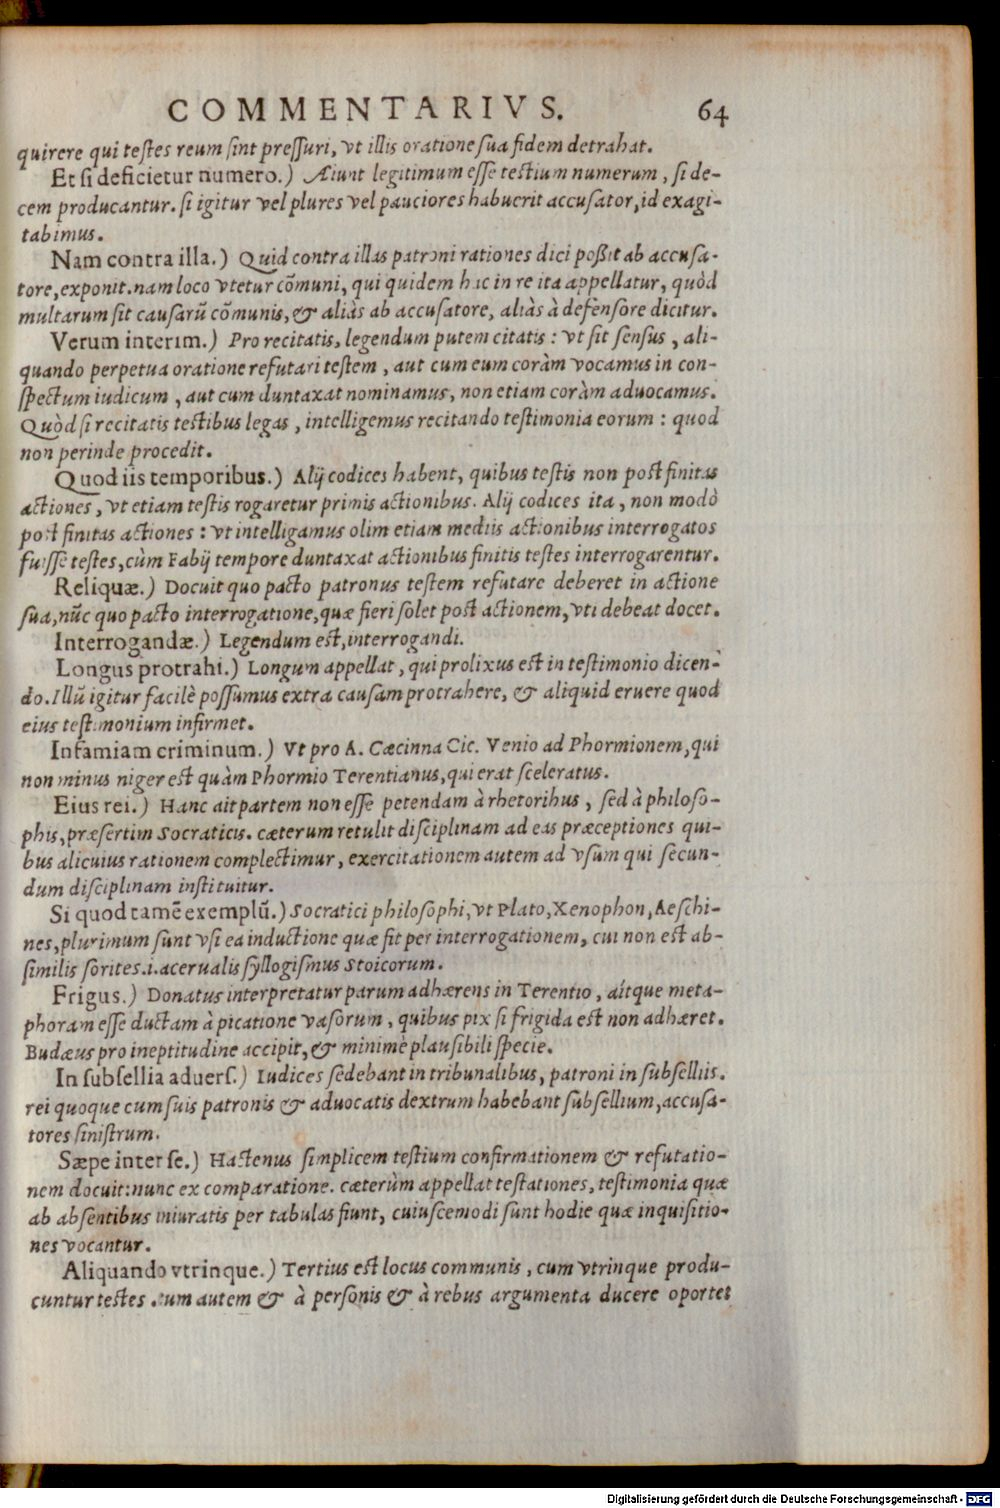 COMMENTARIVS. 64
quirere qui testes reum sint pressuri, vt illis oratione sua fidem detrahat.
Et si deficietur numero.) Aiunt legitimum esse testium numerum, si de-
cem producantur. si igitur vel plures vel pauciores habuerit accusator, id exagi-
tabimus.
Nam contra illa.) Quid contra illas patroni rationes dici poßit ab accusa-
tore, exponit. nam loco vtetur cõmuni, qui quidem hac in re ita appellatur, quòd
multarum sit causarũ cõmunis, & aliàs ab accusatore, aliàs à defensore dicitur.
Verum interim.) Pro recitatis, legendum putem citatis: vt sit sensus, ali-
quando perpetua oratione refutari testem, aut cum eum coràm vocamus in con-
spectum iudicum, aut cum duntaxat nominamus, non etiam coràm aduocamus.
Quòd si recitatis testibus legas, intelligemus recitando testimonia eorum: quod
non perinde procedit.
Quod iis temporibus.) Alij codices habent, quibus testis non post finitas
actiones, vt etiam testis rogaretur primis actionibus. Alij codices ita, non modò
post finitas actiones: vt intelligamus olim etiam mediis actionibus interrogatos
fuisse testes, cùm Fabij tempore duntaxat actionibus finitis testes interrogarentur.
Reliquæ.) Docuit quo pacto patronus testem refutare deberet in actione
sua, nũc quo pacto interrogatione, quæ fieri solet post actionem, vti debeat docet.
Interrogandæ.) Legendum est, interrogandi.
Longus protrahi.) Longum appellat, qui prolixus est in testimonio dicen-
do. Illũ igitur facilè possumus extra causam protrahere, & aliquid eruere quod
eius testimonium infirmet.
Infamiam criminum.) Vt pro A. Cæcinna Cic. Venio ad Phormionem, qui
non minus niger est quàm Phormio Terentianus, qui erat sceleratus.
Eius rei.) Hanc ait partem non esse petendam à rhetoribus, sed à philoso-
phis, præsertim Socraticis. cæterum retulit disciplinam ad eas præceptiones qui-
bus alicuius rationem complectimur, exercitationem autem ad vsum qui secun-
dum disciplinam instituitur.
Si quod tamẽ exemplũ.) Socratici philosophi, vt Plato, Xenophon, Aeschi-
nes, plurimum sunt vsi ea inductione quæ fit per interrogationem, cui non est ab-
similis sorites .i. acerualis syllogismus Stoicorum.
Frigus.) Donatus interpretatur parum adhærens in Terentio, aitque meta-
phoram esse ductam à picatione vasorum, quibus pix si frigida est non adhæret.
Budæus pro ineptitudine accipit, & minimè plausibili specie.
In subsellia aduers.) Iudices sedebant in tribunalibus, patroni in subselliis.
rei quoque cum suis patronis & aduocatis dextrum habebant subsellium, accusa-
tores sinistrum.
Sæpe inter se.) Hactenus simplicem testium confirmationem & refutatio-
nem docuit: nunc ex comparatione. cæterùm appellat testationes, testimonia quæ
ab absentibus iniuratis per tabulas fiunt, cuiuscemodi sunt hodie quæ inquisitio-
nes vocantur.
Aliquando vtrinque.) Tertius est locus communis, cum vtrinque produ-
cuntur testes. cum autem & à personis & à rebus argumenta ducere oportet
Digitalisierung gefördert durch die Deutsche Forschungsgemeinschaft - DFG